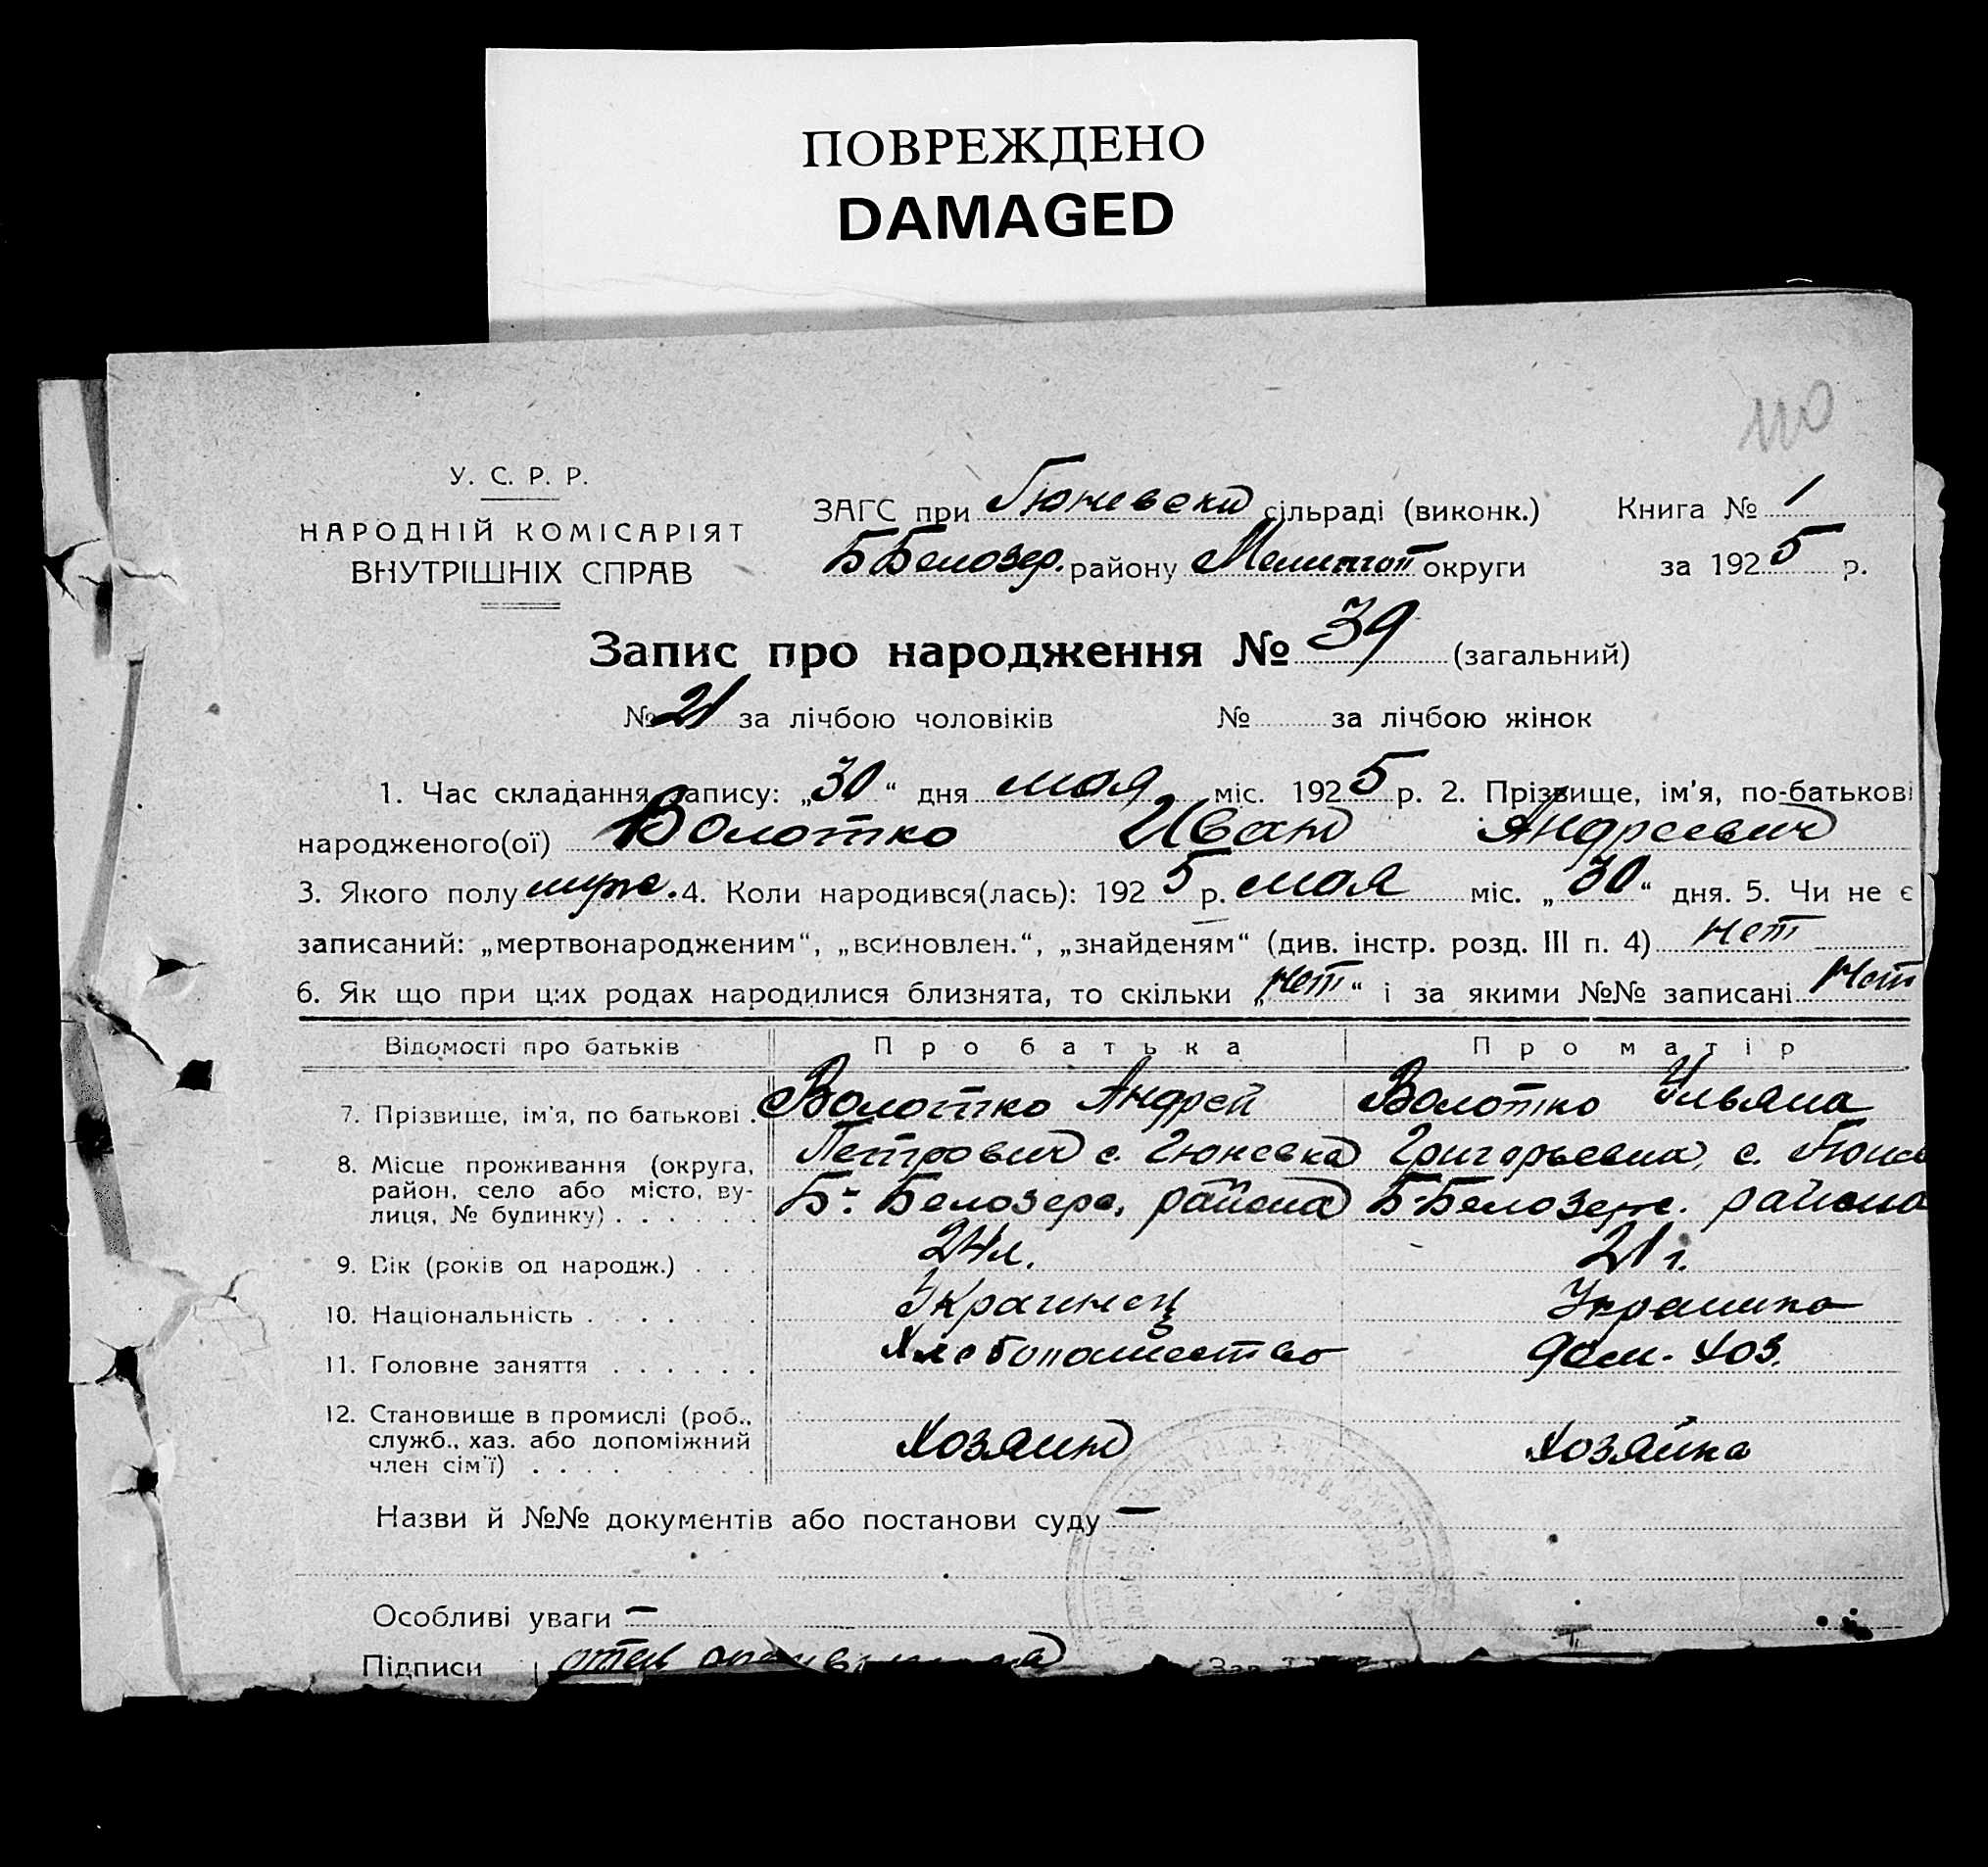 ПОВРЕЖДЕНО
DAMAGED
110
У. С. Р. Р.
НАРОДНІЙ КОМІСАРІЯТ
ВНУТРІШНІХ СПРАВ
ЗАГС при Гюневский сільраді (виконк.)
Б Белозер. району Мелитоп округи
Книга № 1
за 1925 р.
Запис про народження № 39 (загальний)
№ 21 за лічбою чоловіків № за лічбою жінок
1. Час складання запису: „30“ дня мая міс. 1925 р. 2. Прізвище, ім'я, по-батькові
народженого(ої) Волотко Иван Андреевич
3. Якого полу муж. 4. Коли народився(лась): 1925 р. мая міс. „30“ дня. 5. Чи не є
записаний: „мертвонародженим“, „всиновлен.“, „знайденям“ (див. інстр. розд. III п. 4) нет
6. Як що при цих родах народилися близнята, то скільки „нет“ і за якими №№ записані нет
Відомості про батьків Про батька Про матір
7. Прізвище, ім'я, по батькові . Волотко Андрей Волотко Ульяна
Петрович с. Гюневка Григорьевна, с. Гюнев
8. Місце проживання (округа,
район, село або місто, ву-
лиця, № будинку) . . . . . .
Б-Белозерс. района Б-Белозерс. района
9. Вік (років од народж.) . . . 24 л. 21 г.
10. Національність . . . . . . . Украинец Украинка
11. Головне заняття . . . . . . Хлебопашество дом. хоз.
12. Становище в промислі (роб.,
служб., хаз. або допоміжний
член сім'ї) . . . .
Хозяин Хозяйка
Назви й №№ документів або постанови суду —
Особливі уваги —
Підписи отец